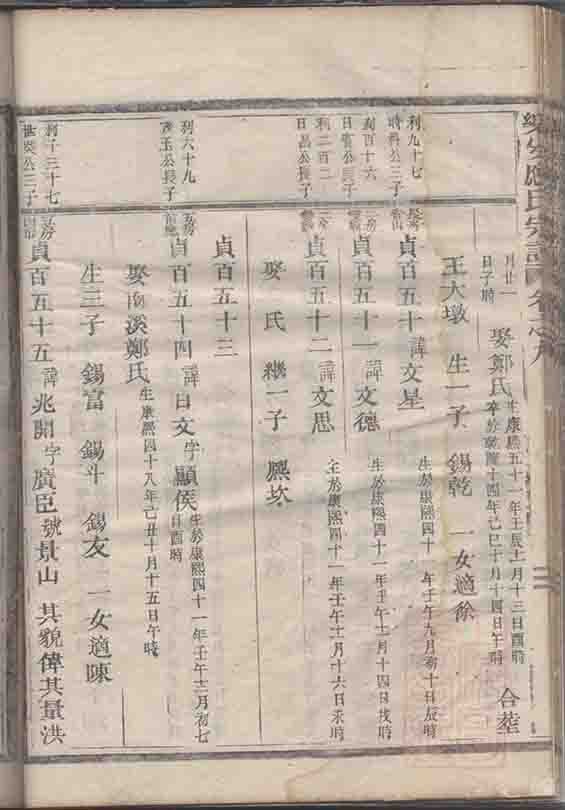 月廿一日子時 娶鄭氏 生康熙五十一年壬辰十月十三日酉時 卒於乾隆十四年己巳十月十四日午時 合塟
王大墩 生一子 錫乾 一女適徐
利九十七 公三子
貞百五十 諱文星 生於康熙四十一年壬午九月初十日辰時
利百十六 日 公長子
貞百五十一 諱文德 生於康熙四十一年壬午十一月十四日戌時
利二百二 日昌公長子
貞百五十二 諱文思 生於康熙四十一年壬午十一月十六日亥時
娶 氏 繼一子 熙坎
貞百五十三
利六十九 玉公長子 五房
貞百五十四 諱日文 字顯侯 生於康熙四十一年壬午十二月初七日酉時
娶南溪鄭氏 生康熙四十八年己丑十月十五日午時
生三子 錫富 錫斗 錫友 一女適陳
利千三十七 世 公三子
貞百五十五 諱兆開 字廣臣 號景山 其貌偉其量洪